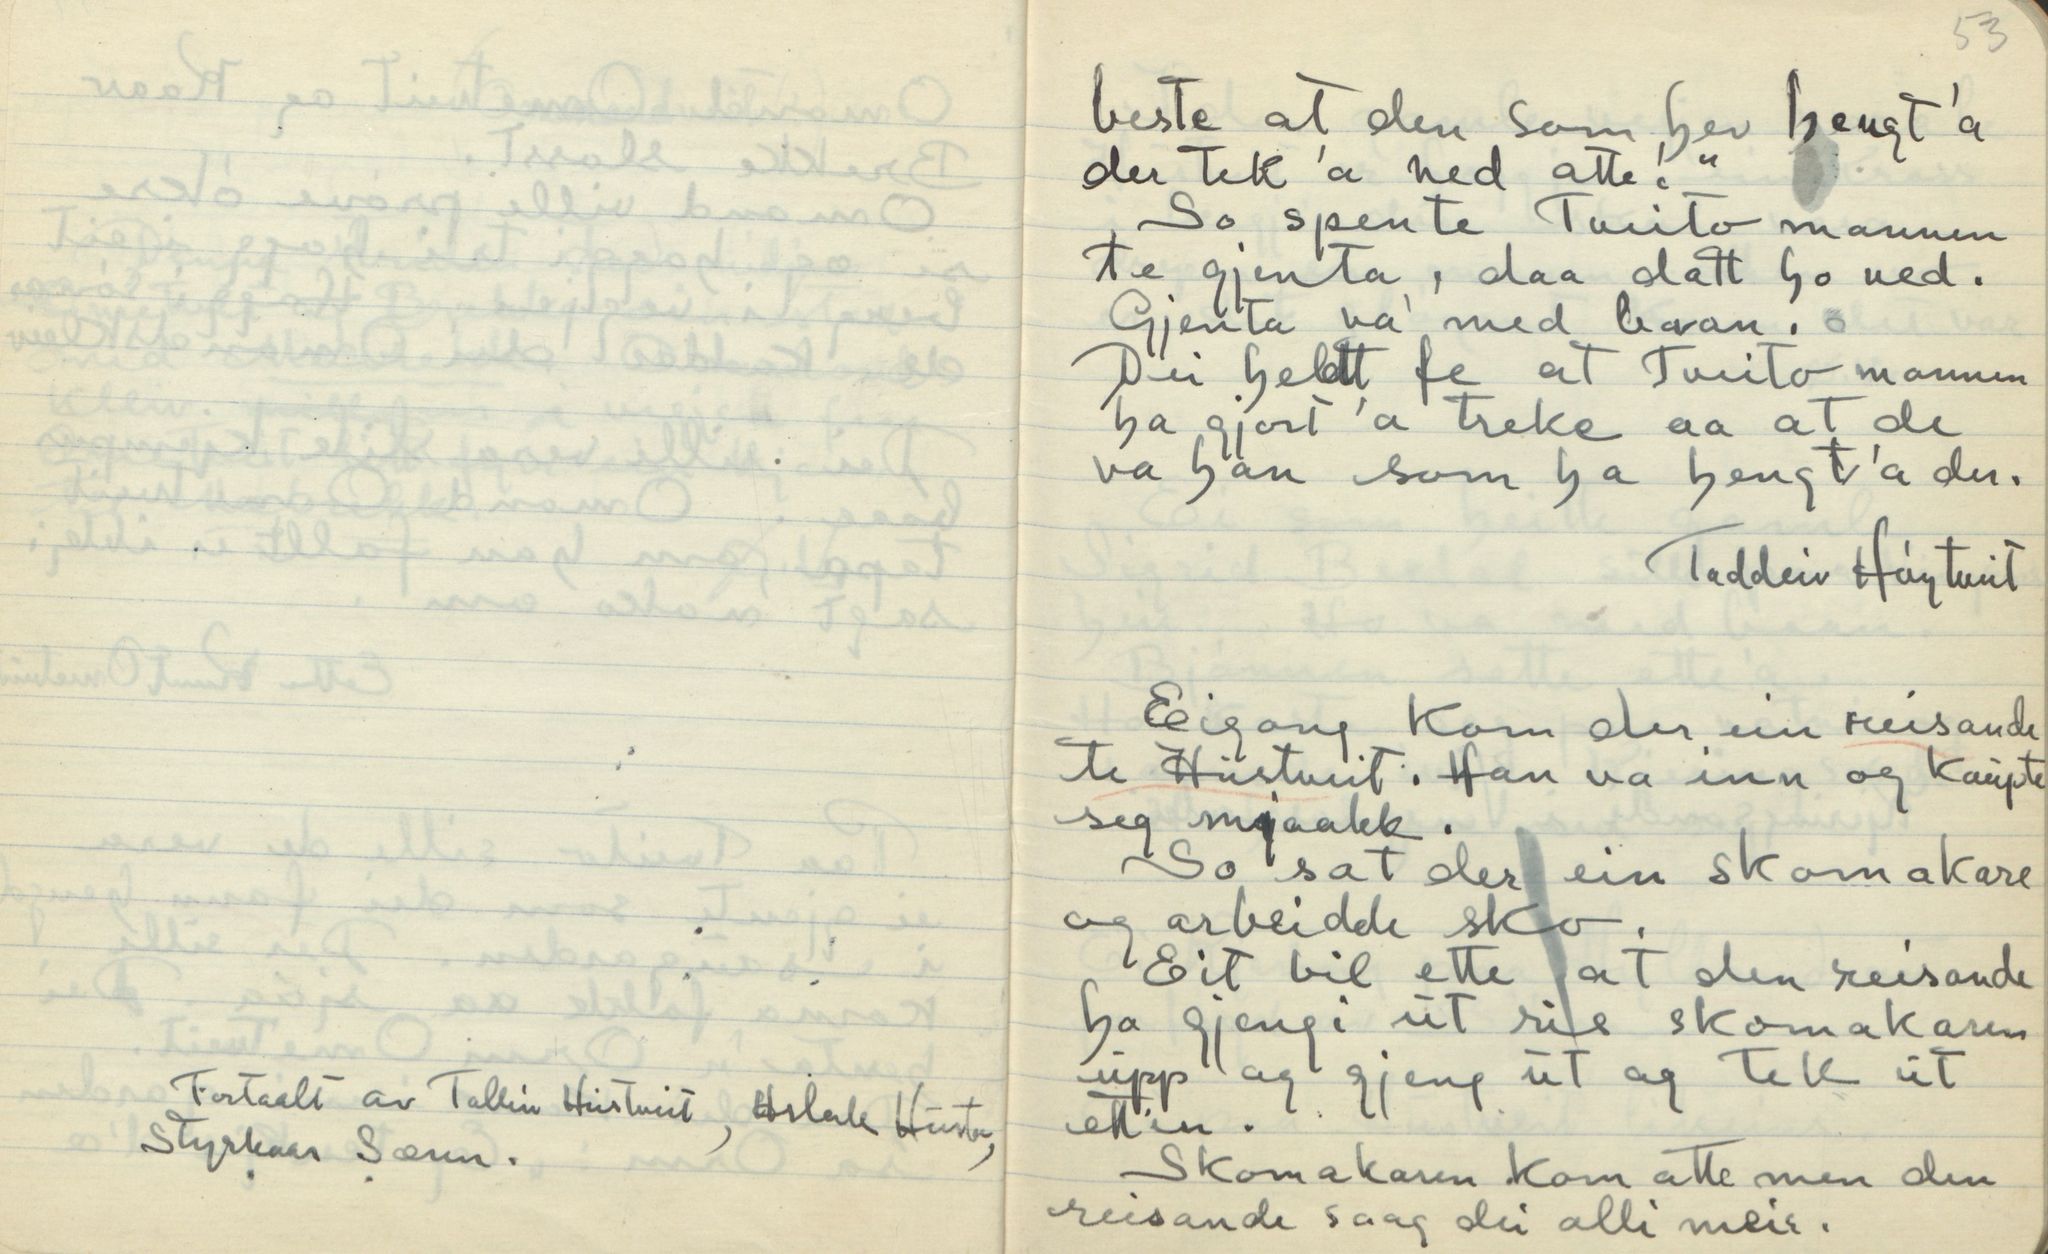 Fortaalt av Tallein Hüstveit, Aslak Hüstv,
Styrkaar Særen.
53
beste at den som hev hengt 'a
der tek 'a ned atte!"
So spente Tveito mannen
te gjenta, daa datt ho ned.
Gjenta va' med bavan.
Dei heldt fe at Tveito mannen
ha gjort 'a treke aa at de
va han som ha hengt 'a der.
Taddeiv Høytveit
Eigong kom der ein reisande
te Hüstveit. Han va inn og kaüpte
seg mjaakk.
So sat der ein skomakare
og arbeidde sko.
Eit bil ette at den reisande
ha gjengi üt ris skomakaren
üpp og gjeng üt og tek üt
ett'en.
Skomakaren kom atte men den
reisande saag dei alli meir.